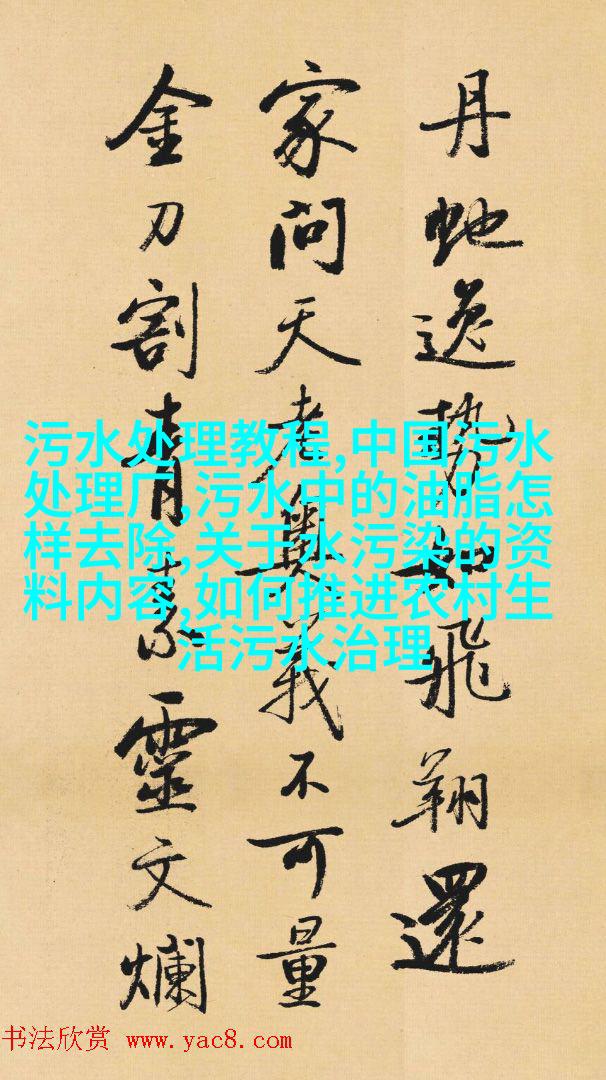 丹虵逸勢如飛翔還
家問天老奧義不可量
金刀割青素靈文爛
污水处理教程,中国污水
处理厂,污水中的油脂怎
样去除,关于水污染的资
料内容,如何推进农村生
活污水治理
书法欣赏 www.yac8.com